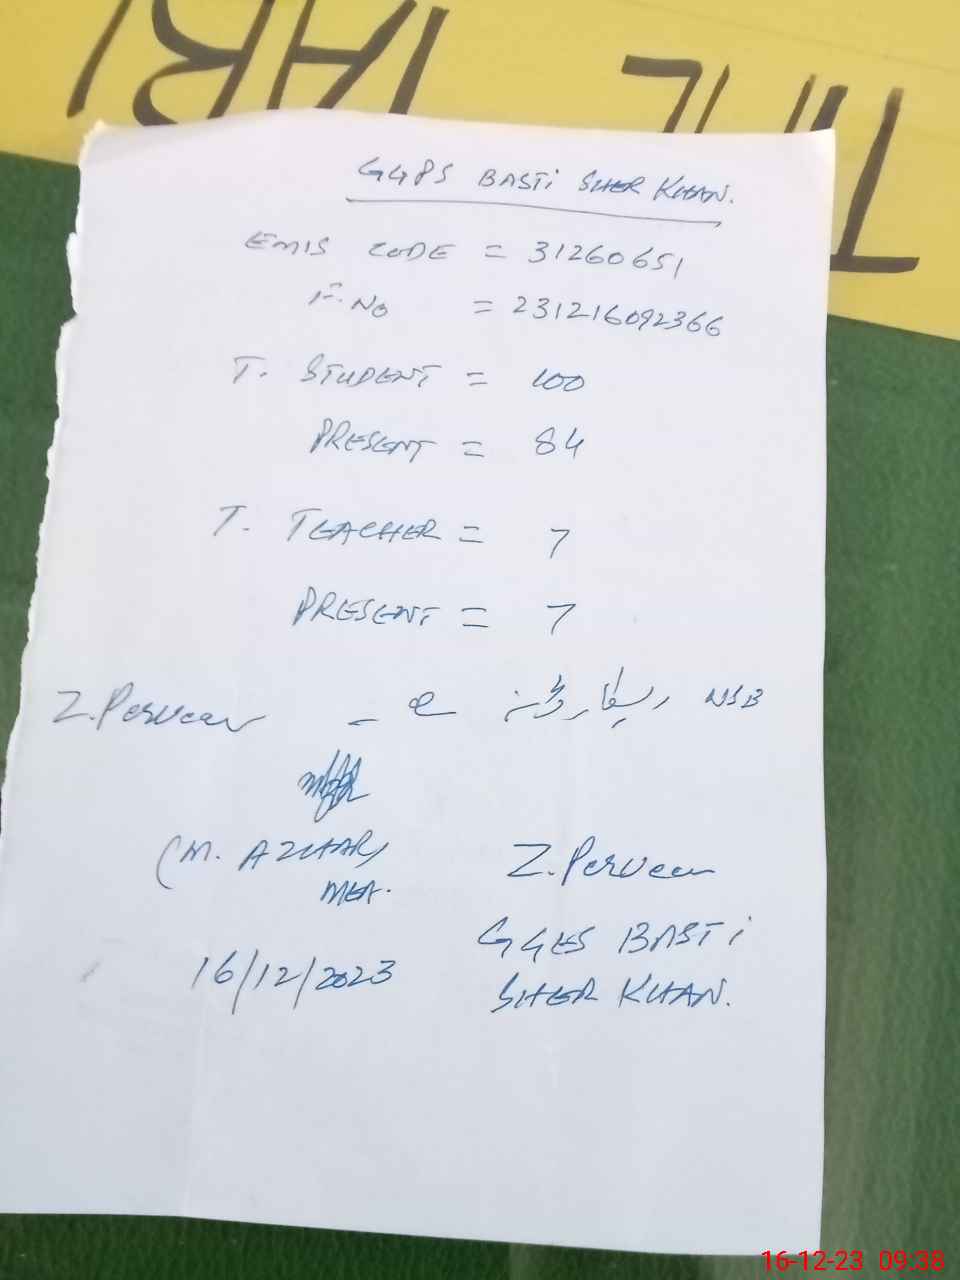 TIME TABL
GGPS BASTi SHER KHAN.
EMIS CODE = 31260651
F.No = 231216092366
T. STUDENT = 100
PRESENT = 84
T. TEACHER = 7
PRESENT = 7
NSB ریکارڈ نہ ہے -
Z.Perveen
(M. AZHAR)
MEA.
Z.Perveen
GGES BASTi
SHER KHAN.
16/12/2023
16-12-23 09:38